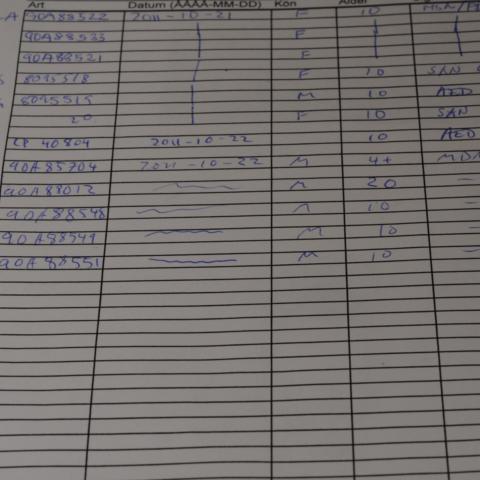 Art Datum (ÅÅÅÅ-MM-DD) Kön Ålder
90A88522 2011-10-21 F 10
90A88533 F
90A88521 F
8095518 F 10 SAN
8095519 M 10 AED
20 F 10 SAN
40804 2011-10-22 10 AED
90A85704 2011-10-22 M 4+
90A88012 M 20 —
90A88548 M 10 —
90A88549 M 10 —
90A88551 M 10 —